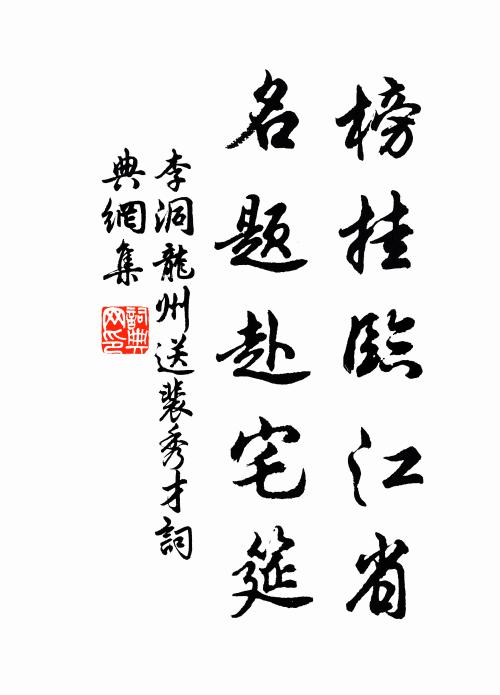 榜挂臨江省
名題赴宅筵
李洞龍州送裴秀才詞
典網集
詞典网印